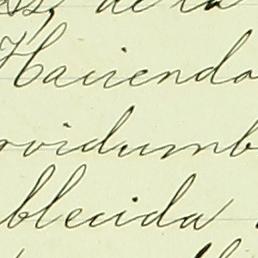 de la
Haciendo
rvidumb
blecida